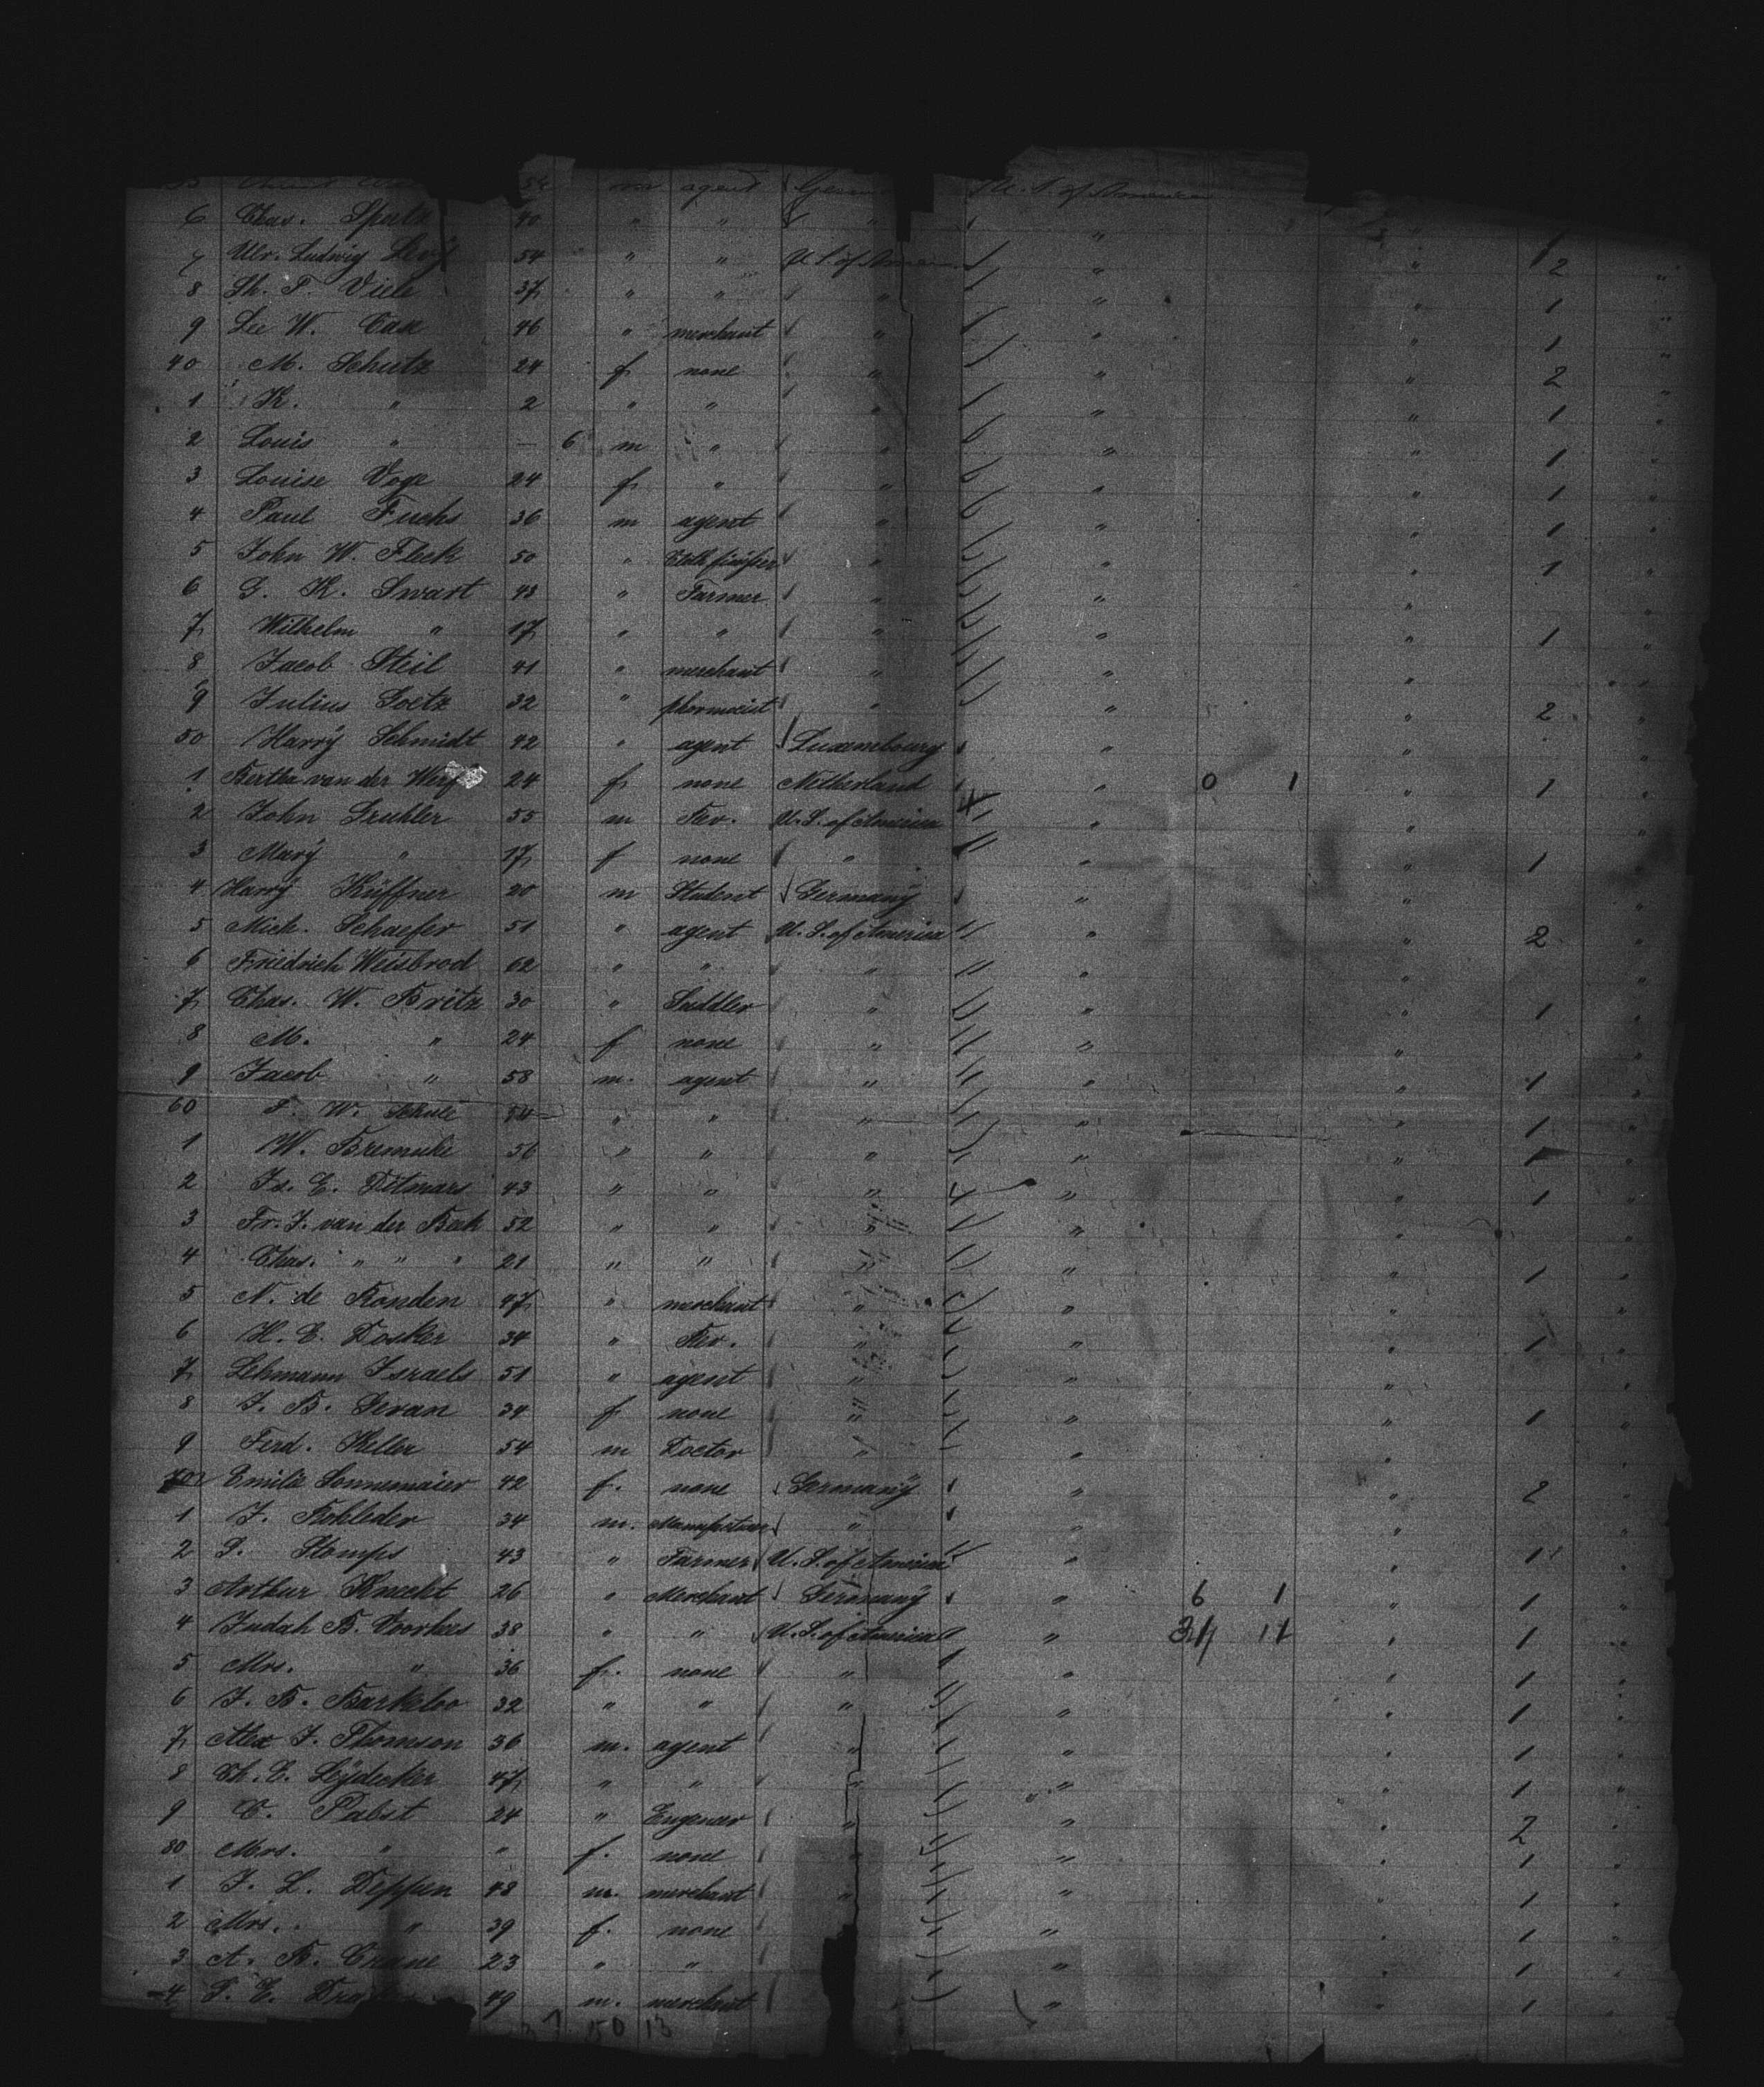 54 m agent U. S. of America
6 Chas. Spertz 40 " " " "
7 Ulr. Ludwig Levy 54 " " U. S. of " " 2 "
8 Th. F. Viele 37 " " " " " 1 "
9 Lee W. Case 46 " merchant " " " 1 "
40 M. Schutz 24 f none " " " 2 "
1 K. " 2 " " " " " 1 "
2 Louis " — 6 m " " " " 1 "
3 Louise Voge 24 f " " " " 1 "
4 Paul Fuchs 36 m agent " " " 1 "
5 John W. Fleck 50 " " " " 1 "
6 G. K. Swart 43 " Farmer " " " "
7 Wilhelm " 17 " " " " " 1 "
8 Jacob Steil 41 " merchant " " " "
9 Julius Goetz 32 " pharmacist " " " 2 "
50 Harry Schmidt 42 " agent Luxembourg " " "
1 Bertha van der Werf 24 f none Netherland " 0 1 " 1 "
2 John Gruhler 55 m Rev. U. S. of America " " "
3 Mary " 17 f none " " " 1 "
4 Harry Küffner 20 m Student Germany " " "
5 Mich. Schaefer 51 " agent U. S. of America " " 2 "
6 Friedrich Weisbrod 62 " " " " " "
7 Chas. W. Britz 30 " Saddler " " " 1 "
8 M. " 24 f none " " " "
9 Jacob " 58 m. agent " " " 1 "
60 F. W. Schule 54 " " " " 1 "
1 W. Bremuke 56 " " " " " 1 "
2 Js. E. Ditmars 43 " " " " " 1 "
3 Fr. J. van der Beek 52 " " " " " "
4 Chas. " " " 21 " " " " " 1 "
5 N. de Ronden 47 " merchant " " " "
6 H. E. Dosker 34 " Rev. " " " 1 "
7 Lehmann Israels 51 " agent " " " "
8 J. B. Gevan 34 f none " " " 1 "
9 Ferd. Keller 54 m Doctor " " " "
70 Emilie Sonnemaier 42 f. none Germany " " 2 "
1 J. Rohleder 34 m. " " " "
2 G. Stomps 43 " Farmer U. S. of America " " 1 "
3 Arthur Knecht 26 " Merchant Germany " 6 1 " 1 "
4 Judah B. Voorhees 38 " " U. S. of America " 11 " 1 "
5 Mrs. " 36 f. none " " " 1 "
6 J. B. Barkeloo 32 " " " " " 1 "
7 Alex J. Thomson 36 m. agent " " " 1 "
8 Th. E. Leydecker 47 " " " " " 1 "
9 C. Pabst 24 " Engeneer " " " 2 "
80 Mrs. " " f. none " " 1 "
1 J. L. Deppen 48 m. merchant " " " 1 "
2 Mrs. " 39 f. none " " 1 "
3 A. B. Crane 23 " " " " 1 "
4 49 m. merchant " " 1 "
50 13